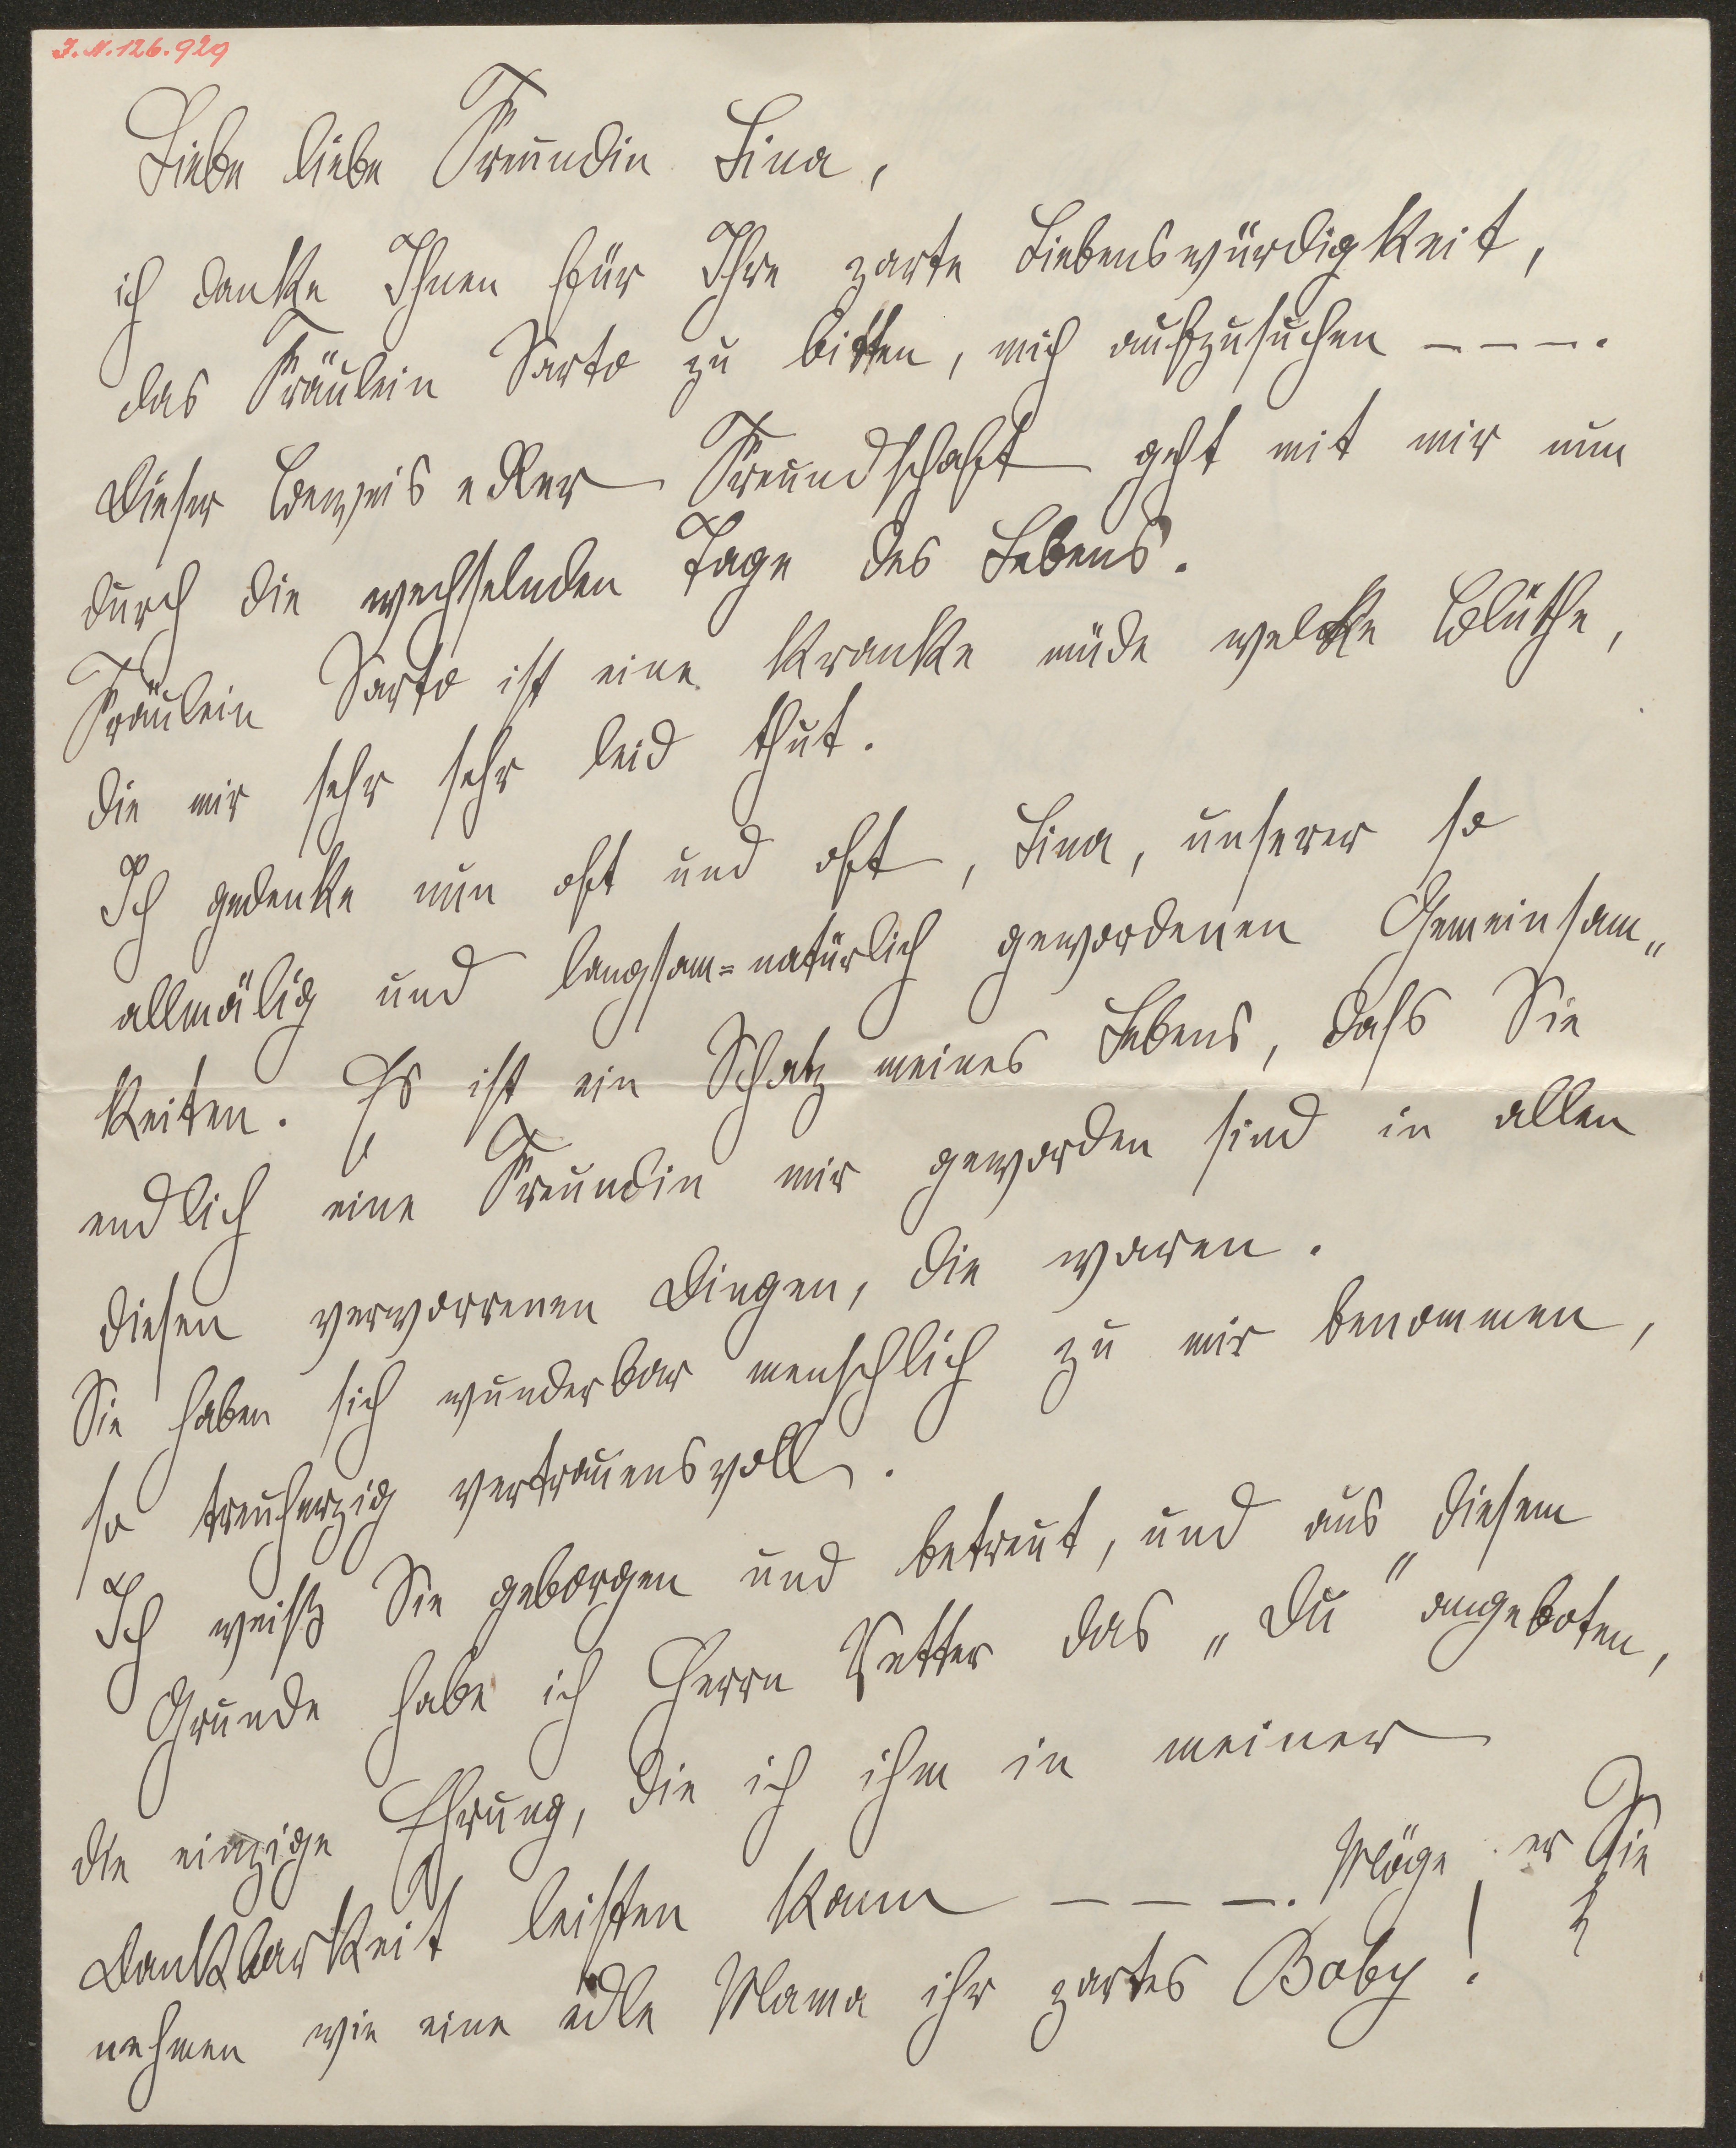 I. N. 126.929
Liebe liebe Freundin Lina,
ich danke Ihnen für Ihre zarte Liebenswürdigkeit,
das Fräulein Sarto zu bitten, mich aufzusuchen – – –.
Dieser Beweis edler Freundschaft geht mit mir nun
durch die wechselnden Tage des Lebens.
Fräulein Sarto ist eine kranke müde welke Blüthe,
die mir sehr sehr leid thut.
Ich gedenke nun oft und oft, Lina, unserer so
allmälig und langsam=natürlich gewordenen Gemeinsam„
keiten. Es ist ein Schatz meines Lebens, dass Sie
endlich eine Freundin mir geworden sind in allen
diesen verworrenen Dingen, die waren.
Sie haben sich wunderbar menschlich zu mir benommen,
so treuherzig vertrauensvoll.
Ich weiß Sie geborgen und betreut, und aus diesem
Grunde habe ich Herrn Vetter das „Du" angeboten,
die einzige Ehrung, die ich ihm in meiner
Dankbarkeit leisten kann – – –. Möge er Sie
nehmen wie eine edle Mama ihr zartes Baby!